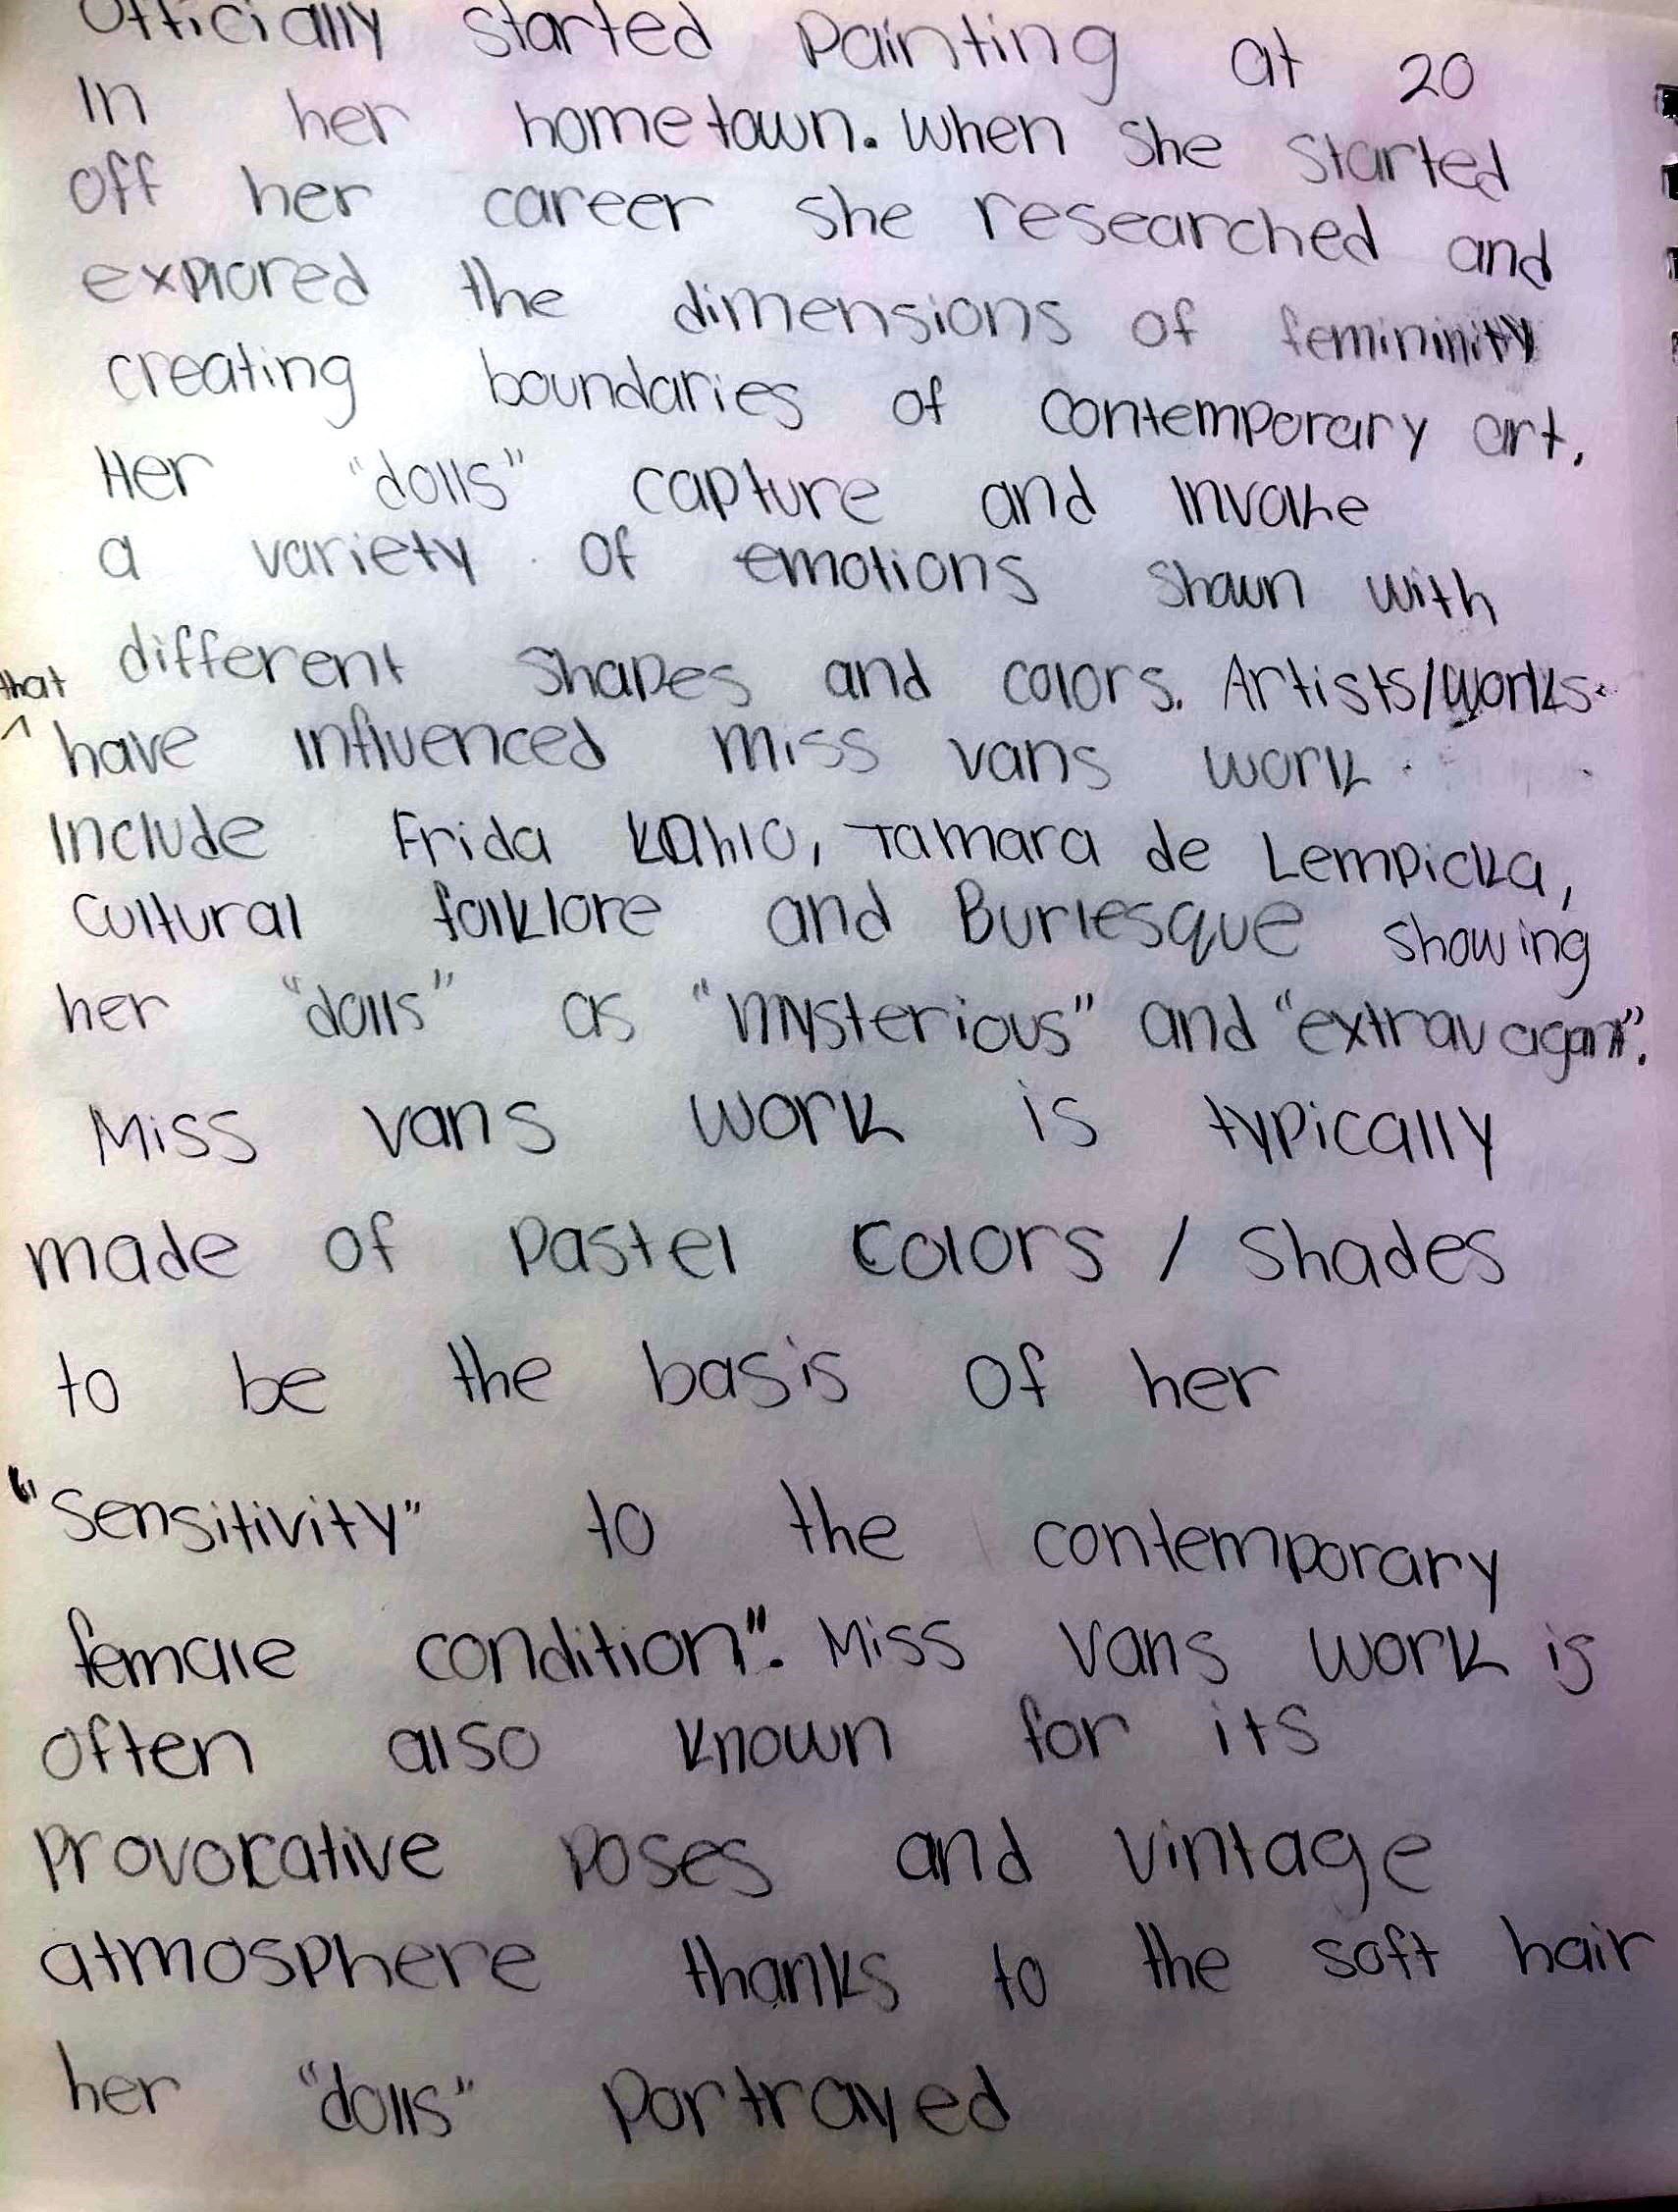 Officially started Painting at 20
In her hometown. When she started
off her career she researched and
explored the dimensions of femininity
creating boundaries of contemporary art.
Her "dolls" capture and invoke
a variety of emotions shown with
different shapes and colors. Artists/works
^that have influenced miss vans work
include Frida Kahlo, Tamara de Lempicka,
cultural folklore and Burlesque showing
her "dolls" as "mysterious" and "extravagant".
Miss vans work is typically
made of pastel colors / shades
to be the basis of her
"Sensitivity" to the contemporary
female condition". Miss Vans work is
often also known for its
provocative poses and vintage
atmosphere thanks to the soft hair
her "dolls" portrayed